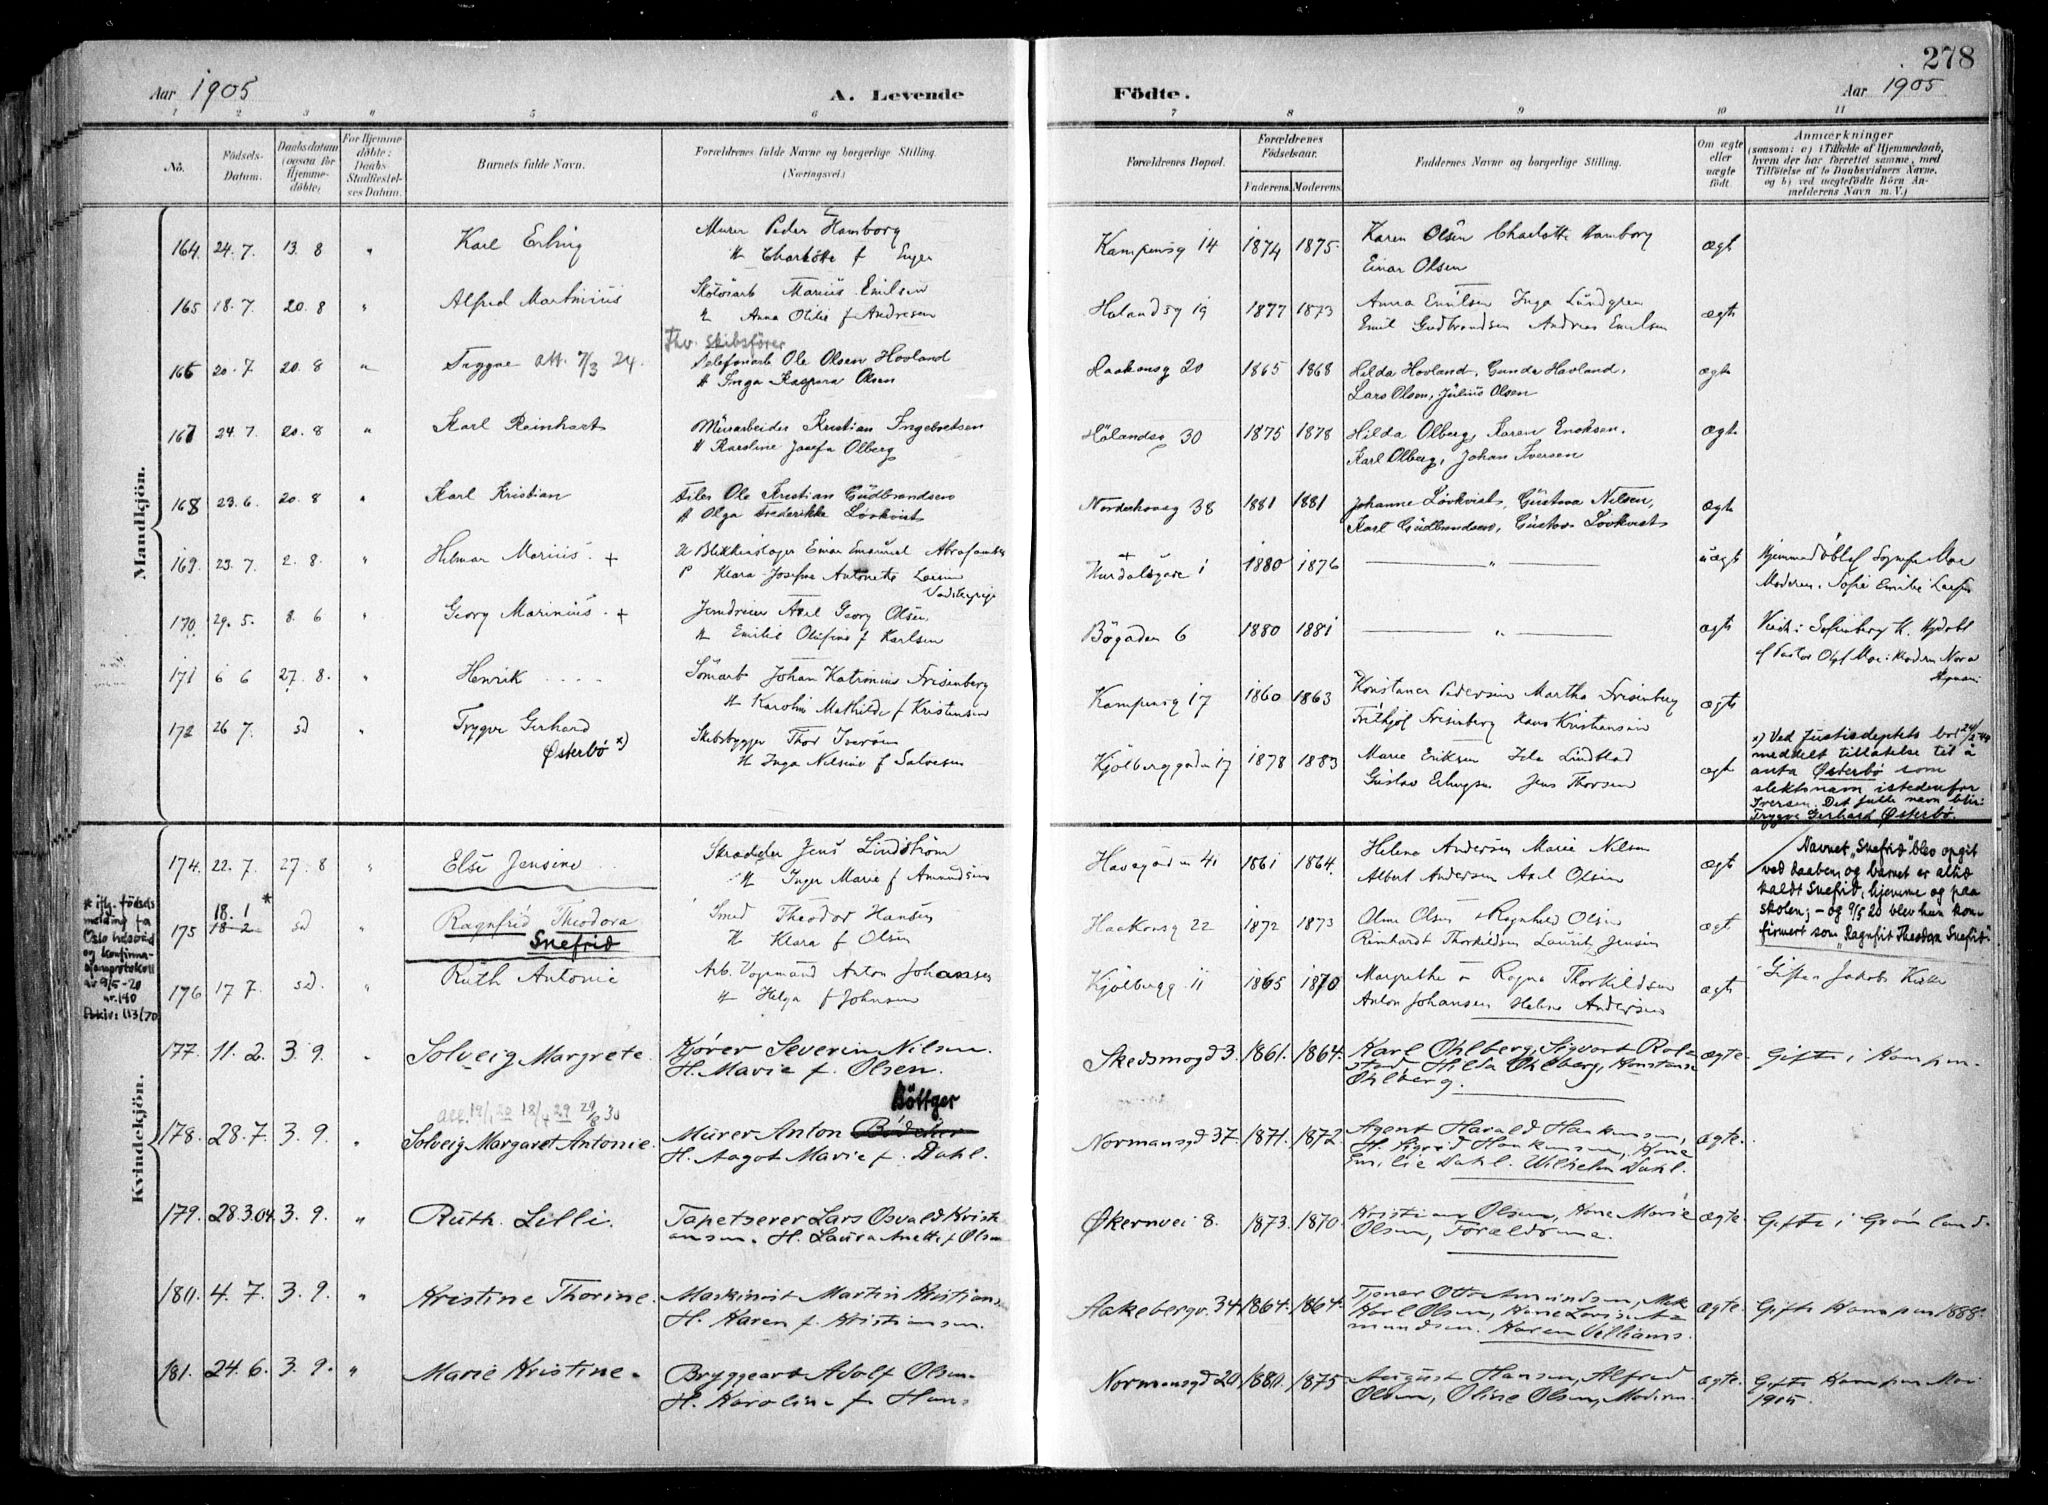 278
Aar 1905
A. Levende
Födte.
Aar 1905
1 2 3 " 5 6 7 8 9 10 11
No.
Födsels-
Datum.
Daabsdatum
(ogsaa for
Hjemme-
döbte)
For Hjemme
döbte:
Daabs-
Stadfæstel-
ses Datum.
Barnets fulde Navn.
Forældrenes fulde Navne og borgerlige Stilling.
(Næringsvei.)
Forældrenes Bopæl.
Forældrenes
Födselsaar.
Faderens. Moderens.
Faddernes Navne og borgerlige Stilling.
Om ægte
eller
uægte
født.
Anmærkninger
(saasom: a) i Tilfælde af Hjemmedaab,
hvem der har forrettet samme, med
Tilföielse af to Daabsvidners Navne,
og b) ved uægtefödte Börn An-
melderens Navn m. V.)
Mandkjön.
164. 24. 7. 13. 8 " Karl Erling
Murer Peder Hamborg
H Charlotte f Enger
Kampensg 14 1874 1875.
Karen Olsen Charlotte Hamborg
Einar Olsen
ægt
165 18. 7. 20. 8 " Alfred Martinius
Marius Emilsen
H Anna Otilie f Andresen
Holandsg 19 1877 1873
Anna Emilsen Inga Lundgren
Emil Gudbrandsen Andreas Emilsen
ægte
166 20. 7. 20. 8 " Trygve Att. 7/3 24.
Fhv. skibsfører
Telefonarb Ole Olsen Hovland
H Inga Kaspara Olsen
Haakonsg 20 1865 1868
Hilda Hovland, Gunda Havland,
Lars Olsen, Julius Olsen
ægt
167 24. 7. 20. 8 " Karl Reinhart
Murarbeider Kristian Ingebretsen
H Karoline Josefa Olberg
Hölandsg 30 1875 1878
Hilda Olberg, Karen Enoksen,
Karl Olberg, Johan Iversen
ægt
168 23. 6. 20. 8 " Karl Kristian
Ole Kristian Gudbrandsen
H Olga Frederikke Lovkvist
Norderhovsg 38 1881 1881
Johanne Lovkvist, Gustava Nilsen,
Karl Gudbrandsen, Gustav Lovkvist
ægt
169. 23. 7. 2. 8. " Hilmar Marius. +
Blikkenslager Einar Emanuel
P Klara Josefne Antonette Larsen
Hurdalsgade 1 1880 1876
" uægt
Moderen: Sofie Emilie
170. 29. 5. 8. 6 " Georg Marinius. +
Axel Georg Olsen
H Emilie Olufine f Karlsen
Bögaden 6 1880 1881
" ægte
171 6 6 27. 8. " Henrik
Johan Katrinius Frisenberg
H Karolin Mathilde f Kristensen
Kampensg 17 1860 1863
Konstance Pedersen Martha Frisenberg
Frithjof Frisenberg Hans Kristiansen
ægte
172 26 7. sd " Trygve Gerhard
Østerbö x)
Skibsbygger Thor Iversen
H Inga Nilsine f Salvesen
Kjölberggaden 17 1878 1883
Marie Eriksen Ida Lindblad
Gustav Jens Thorsen
ægt
x) Ved Justisdeptets brev
meddelt tillatelse til å
anta Østerbö som
slektsnavn istedenfor
Iversen. Det fulle navn blir:
Trygve Gerhard Østerbö.
Kvindekjön.
174. 22. 7. 27. 8 " Else Jensine
Skrædder Jens Lindström
H Inger Marie f Amundsen
Havegaden 41 1861 1864.
Helena Andersen Marie Nilsen
Albert Andersen Axel Olsen
ægt
Navnet „Snefrid" blev opgit
ved daaben og barnet er altid
kaldt Snefrid, hjemme og paa
skolen; – og 9/5 20 blev hun kon-
firmert som „Ragnfrit Theodora Snefrid".
* iflg. fødsels
melding fra
Oslo
og konfirma-
sjonsprotokoll
av 9/5-20
nr. 140
Arkiv: 113/70
175 18. 1 * 18. 2 sd " Ragnfrid Theodora
Snefrid
Smed Theodor Hansen
H Klara f Olsen
Haakonsg 22 1872 1873
Olsen Ragnhild Olsen
Reinhardt Thorkildsen Laurits Jensen
ægt
176 17 7. sd. " Ruth Antonie
Arb. Anton Johansen
H Helga f Johnsen
Kjölbergg 11 1865 1870
Margrethe Ragna Thorkildsen
Anton Johansen Helene Andersen
ægte
Gifte Jakobs Kirke
177. 11. 2. 3. 9. " Solveig Margrete.
Kjører Severin Nilsen.
H. Marie f. Olsen.
Skedsmogd 3. 1861. 1864.
Karl Ohlberg, Sigvart Rol-
stad, Hilda Ohlberg, Konstanse
Ohlberg.
ægte.
Gifte i Kampen.
Att. 19/1 20 18/4 29 29/8 30
178. 28. 7. 3. 9. " Solveig Margaret Antonie.
Böttger
Murer Anton
H. Aagot Marie f. Dahl.
Normansgd 37. 1871. 1872.
Agent Harald Haakensen,
H. Sigrid Haakensen, Kone
Emilie Dahl. Wilhelm Dahl.
ægte.
179. 28. 3. 04. 3. 9. " Ruth Lilli.
Tapetserer Lars Osvald Kristi-
ansen. H. Laura Anette f. Olsen
Økernvei 8. 1873. 1870.
Kristian Olsen, Kone Marie
Olsen, Forældrene.
ægte.
Gifte i Grönland.
180. 4. 7. 3. 9. " Kristine Thorine.
Maskinist Martin Kristians
H. Karen f. Kristiansen.
Aakebergv. 34 1864. 1864.
Tjener Otto Amundsen, Mek
Karl Olsen, Kone Lovise A-
mundsen. Karen Villiams.
ægte.
Gifte Kampen 1888.
181. 24. 6. 3. 9. " Marie Kristine.
Bryggeard Adolf Olsen.
H. Karoline f. Hans
Normansgd 20 1880. 1875.
August Hansen, Alfred
Olsen, Oline Olsen, Moderen.
ægte.
Gifte Kampen Mai
1905.